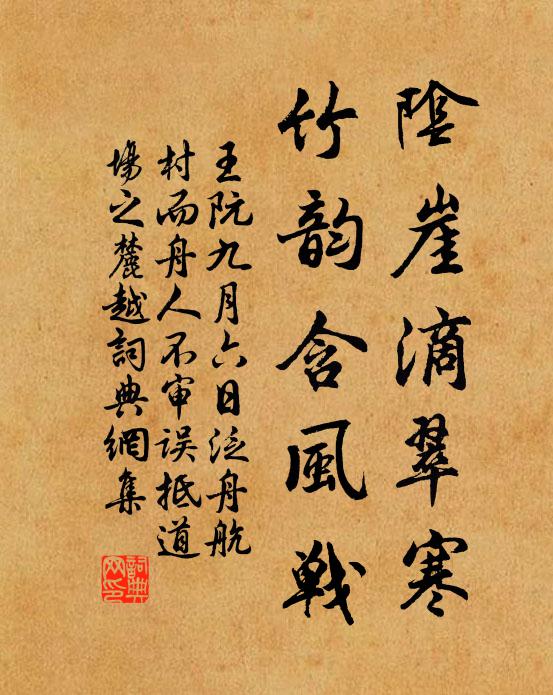 陰崖滴翠寒
竹韵含風戦
王阮九月六日泛舟航
村而舟人不审误抵道
場之麓越詞典網集
詞典网印